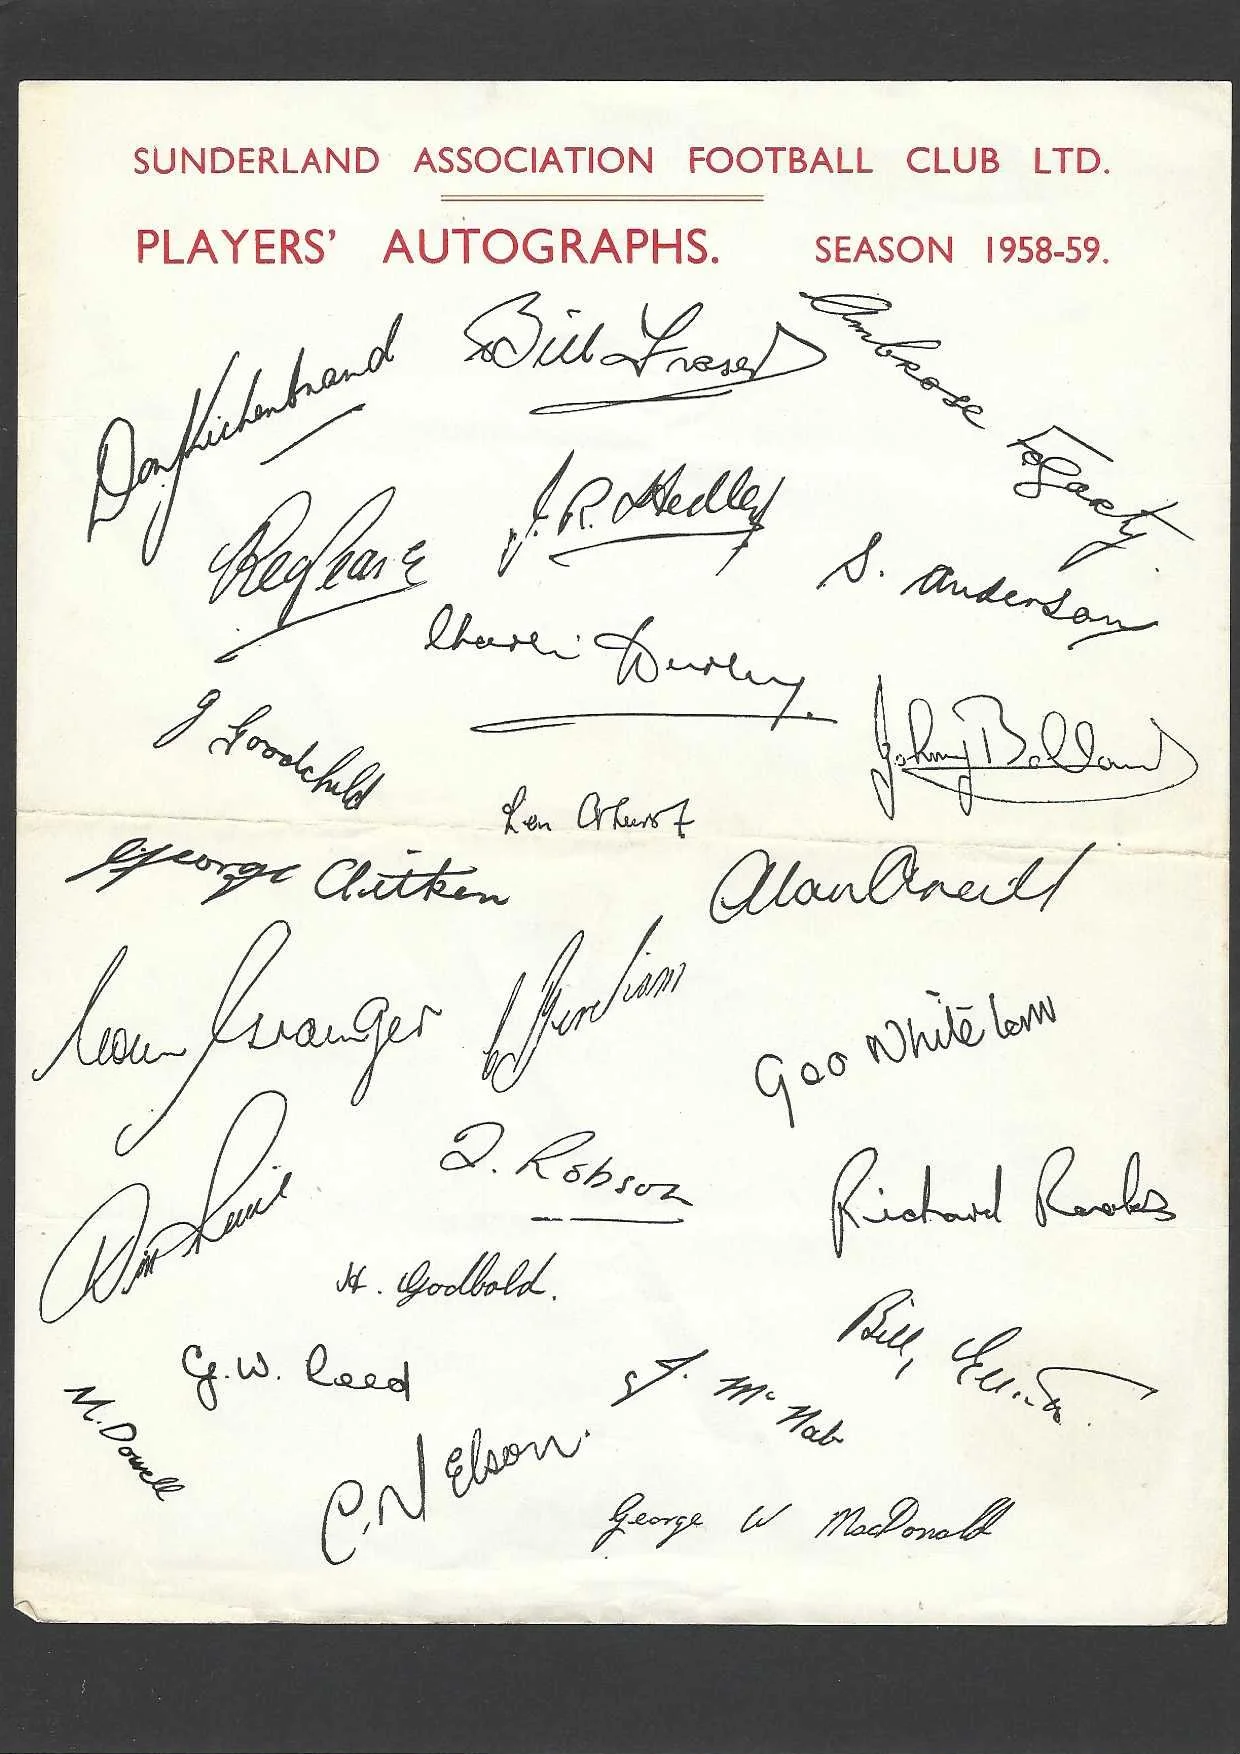 SUNDERLAND ASSOCIATION FOOTBALL CLUB LTD.
PLAYERS' AUTOGRAPHS. SEASON 1958-59.
Don Kichenbrand
Bill Fraser
Ambrose Fogarty
Reg Pearce
J. R. Hedley
S. Anderson
Charlie Hurley.
J Goodchild
Johnny Bollands
Len Ashurst
George Aitken
Alan O'neill
Colin Grainger
Geo Whitelaw
T. Robson
Richard Rooks
H. Godbold.
G. W. Reed
Bill, Elliott.
J. McNab
M. Dowell
C. Nelson.
George W MacDonald